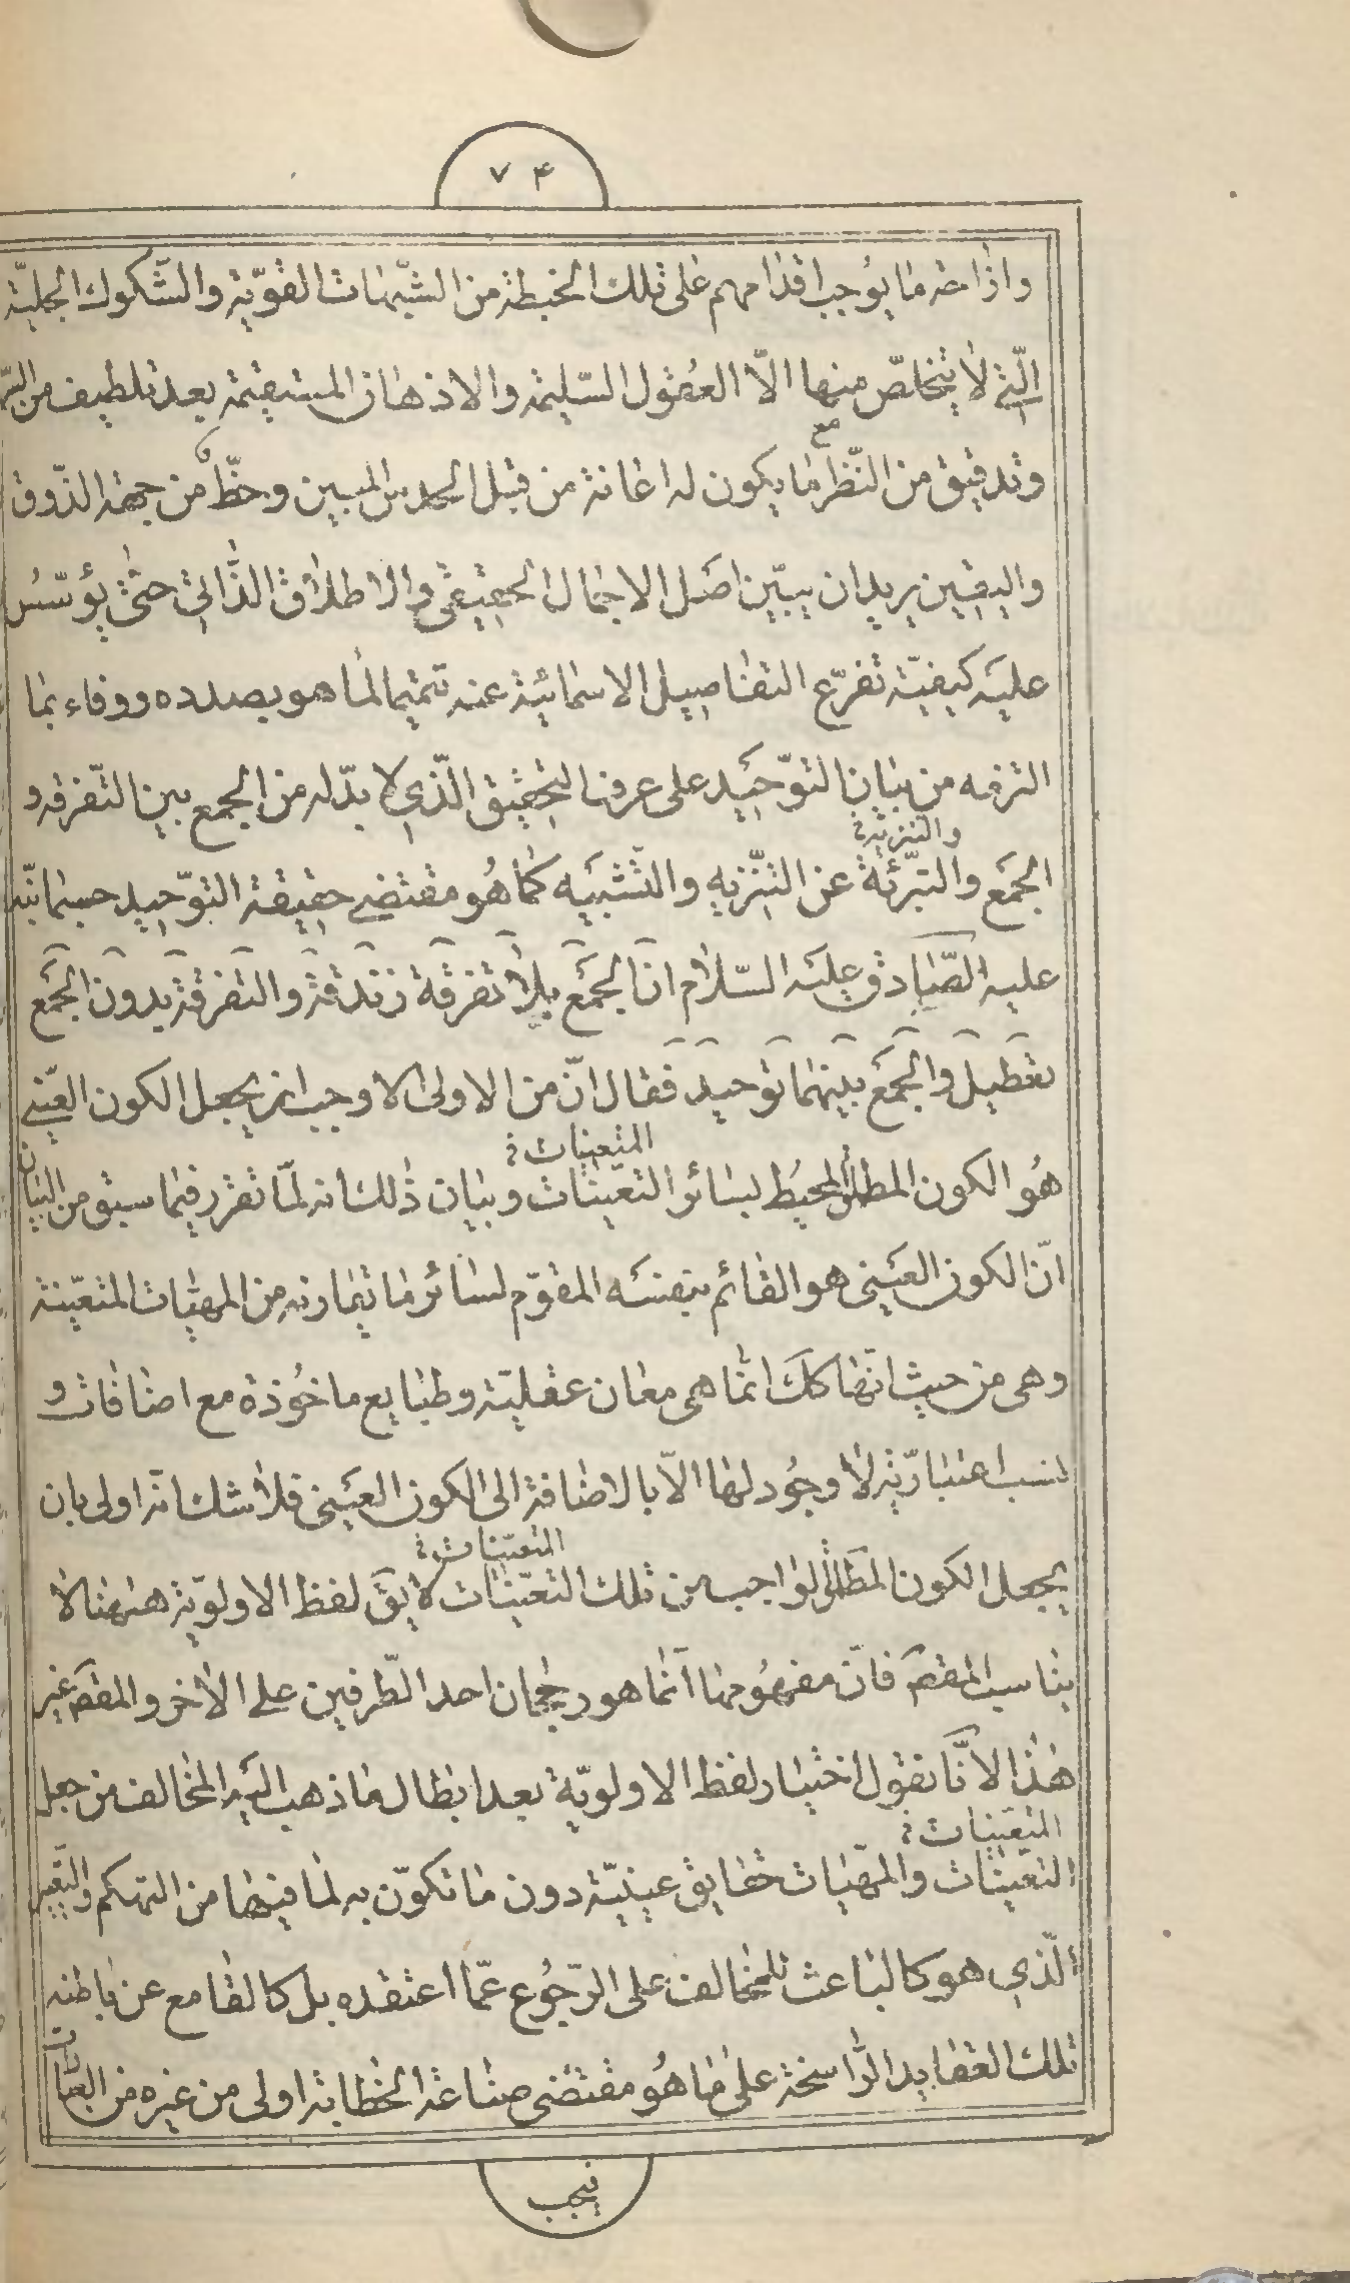 ٧۴
واذاحة ما يوجب اقدامهم على تلك الخبطة من الشبهات القويّة والشكوك الجليّة
الّتي لا يتخلّص منها الّا العقول السّليمة والاذهان المستقيمة بعد تلطيف من السّر
وتدقيق من النّظر مع ما يكون له اعانة من قبل الحدس المبين وحظّ من جهة الذّوق
واليقين يريد ان يبيّن اصل الاجمال الحقيقي والاطلاق الذّاتي حتّى يؤسّس
عليه كيفيّة تفرّع التفاصيل الاسمائيّة عنه تتميما لما هو بصدده ووفاء بما
التزمه من بيان التوّحيد على عرف التحقيق الّذي لا بدّ له من الجمع بين التّفرقه و
والتنزيه ؟
الجمع والتبرّئة عن التنّزيه والتّشبيه كما هُو مقتضى حقيقة التوّحيد حسبما نبّه
عليه الصّادق عليه السّلام انّ الجمع بلا تفرقة زندقة والتفرقة بدون الجمع
تعطيل والجمع بينهما توحيد فقال انّ من الاولى الاوجب ان يجعل الكون العينى
المتعينات ؟
هُو الكون المطلق المحيُط لسائر التعيّنات وبيان ذلك انه لمّا تقرر فيما سبق من البيان
انّ الكون العينى هو القائم بنفسه المقوّم لسائر ما يقارنه من المهيّات المتعيّنة
وهى من حيث انّها كك انّما هى معان عقليّة وطبايع ماخوُذة مع اضافات و
نسب اعتباريّة لا وجُود لها الّا بالاضافة الى الكون العينى فلا شك انّه اولى بان
المتعيّنات ؟
يجعل الكون المطلق الواجب من تلك التعيّنات لا يق لفظ الاولويّة هيهنا لا
يناسب المقصَ فانّ مفهوُمها انّما هو رجحان احد الطّرفين على الاخر والمقصَ غير
هذا لانّا نقول اختيار لفظ الاولويّة بعد ابطال ما ذهب اليه المخالف من جعل
المتعيّنات ؟
التعيّنات والمهيّات حقايق عينيّة دون ما تكوّن به لما فيها من التهكم والتّعيير
الّذي هو كالباعث للمخالف على الرّجوُع عمّا اعتقده بل كالقامع عن باطنه
تلك العقايد الرّاسخة على ما هُو مقتضى صناعة الخطابة اولى من غيره من العبارات
فيجب